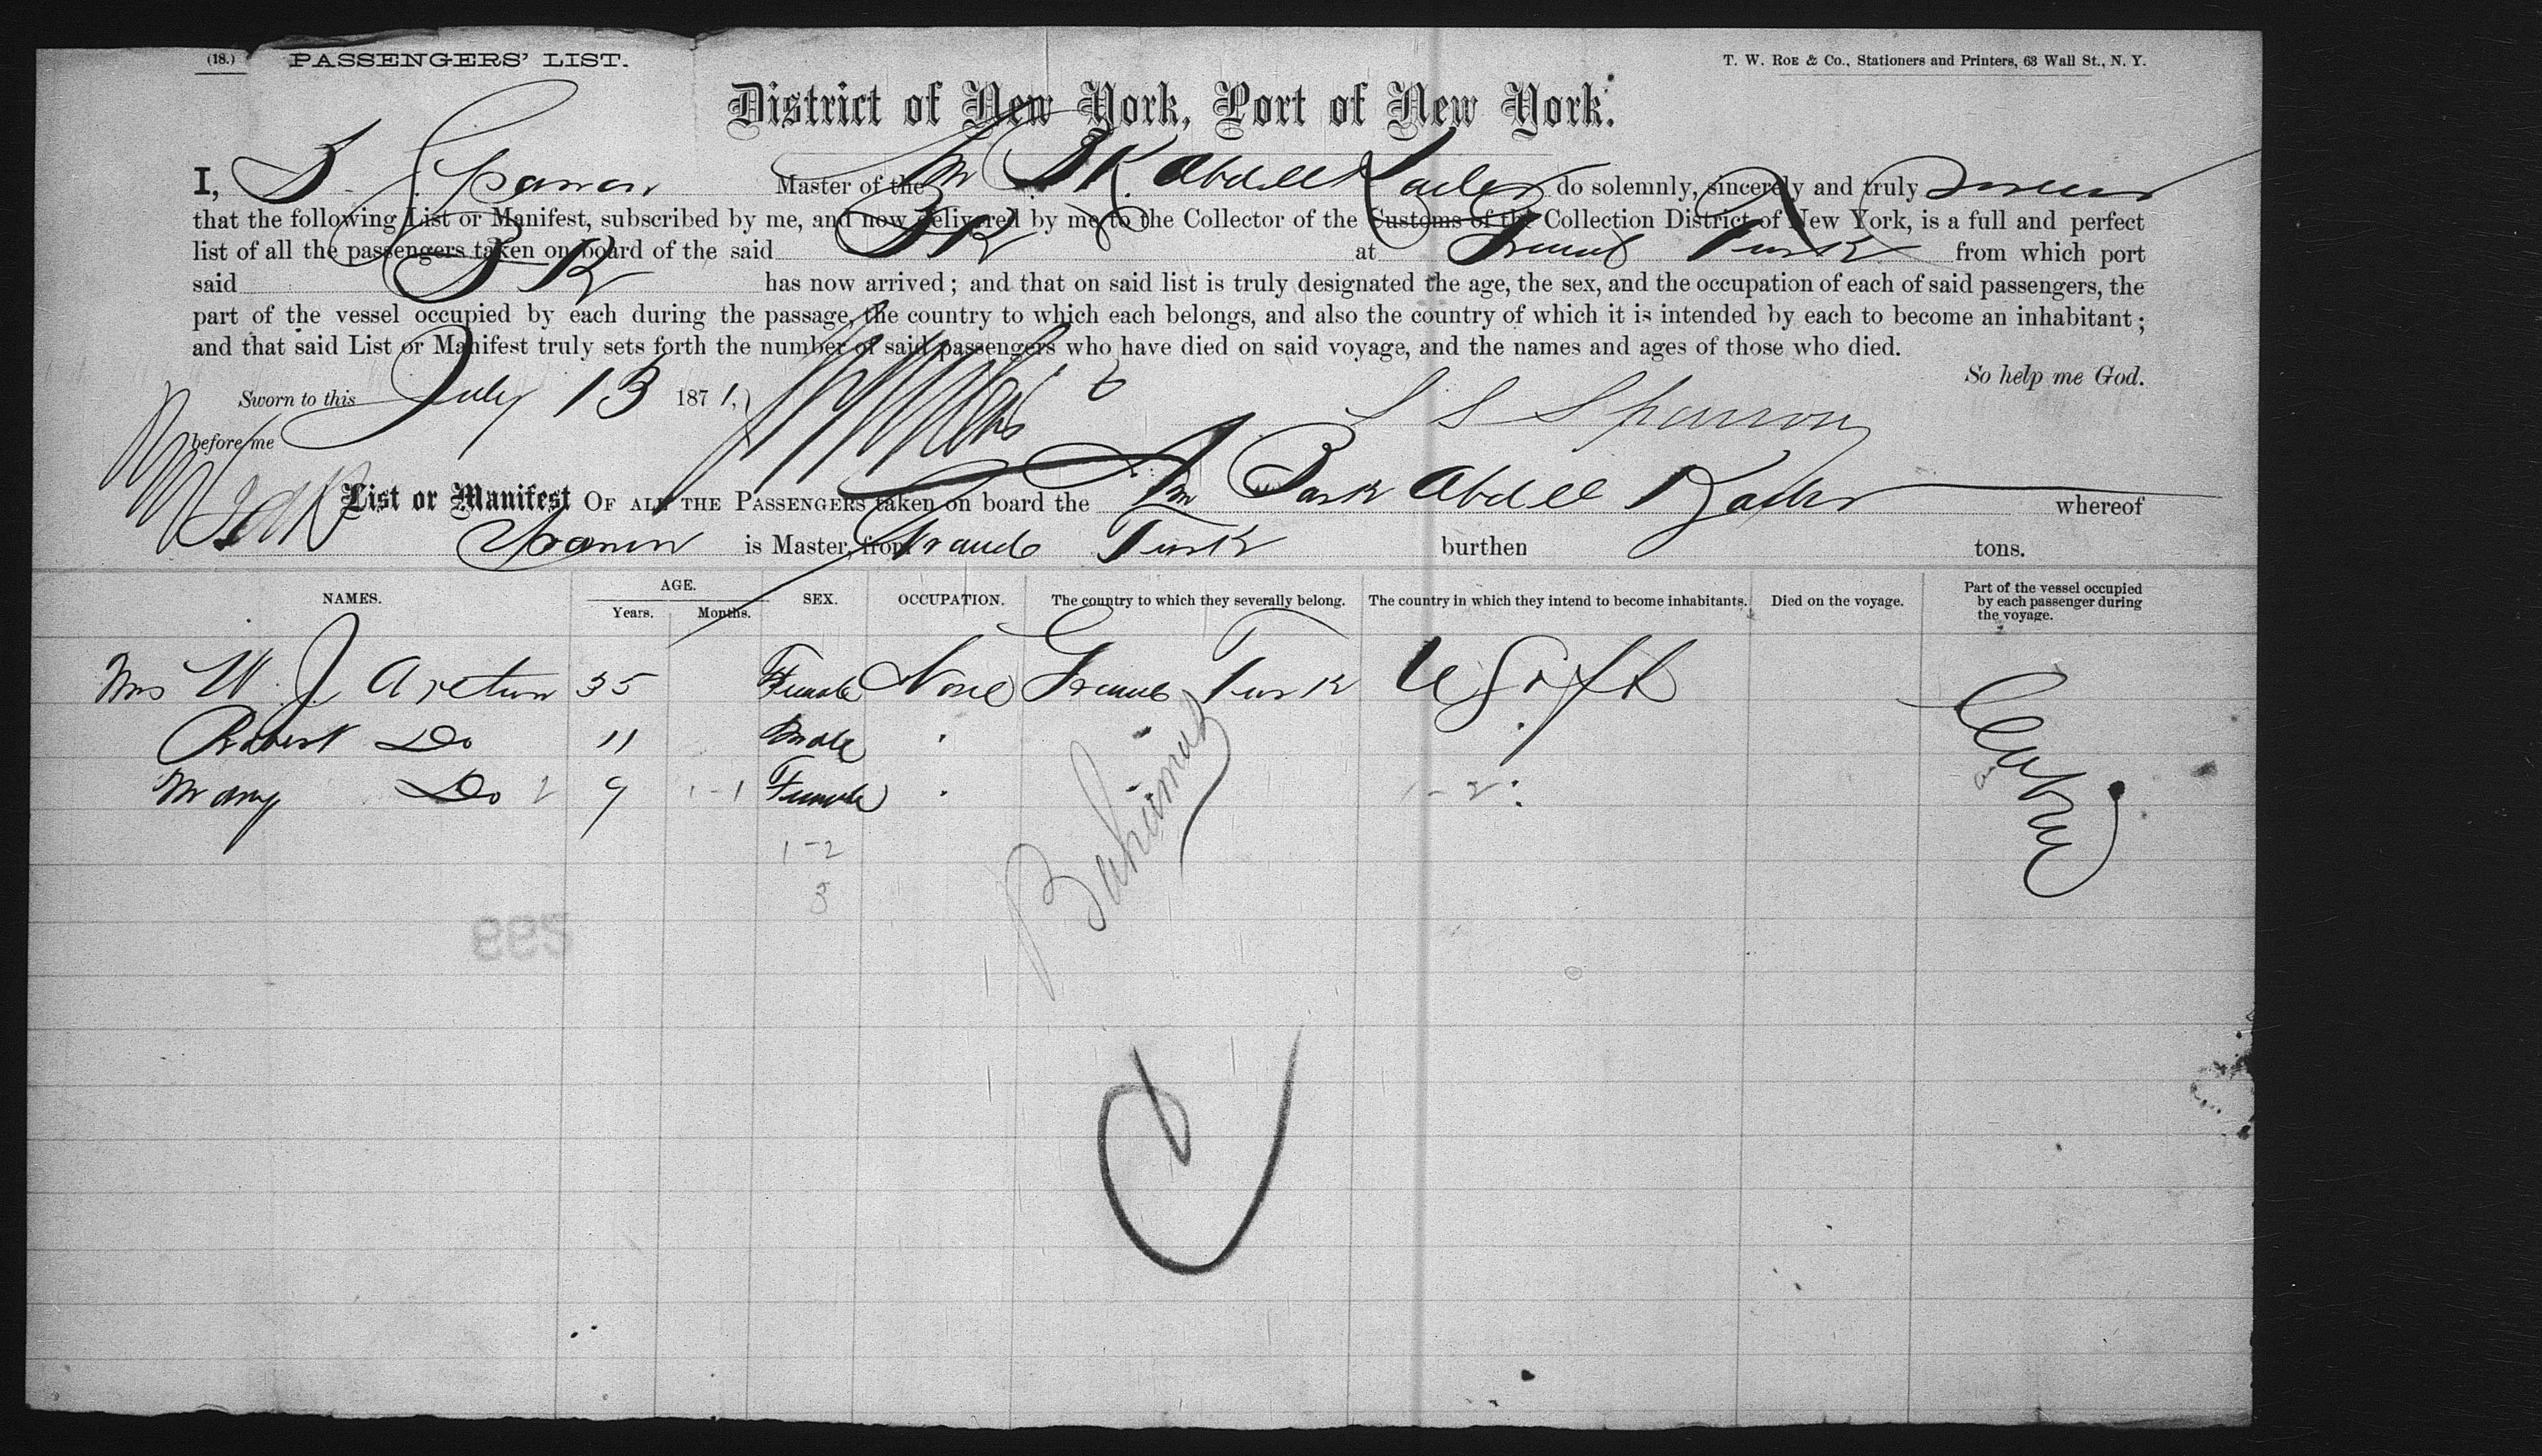 (18.) PASSENGERS' LIST. T. W. ROE & Co., Stationers and Printers, 63 Wall St., N. Y.
District of New York, Port of New York.
I, S. Sparrow Master of the Am BK. Abdell Kader do solemnly, sincerely and truly swear
that the following List or Manifest, subscribed by me, and now delivered by me to the Collector of the Customs of the Collection District of New York, is a full and perfect
list of all the passengers taken on board of the said BK at Grand Turk from which port
said BK has now arrived; and that on said list is truly designated the age, the sex, and the occupation of each of said passengers, the
part of the vessel occupied by each during the passage, the country to which each belongs, and also the country of which it is intended by each to become an inhabitant;
and that said List or Manifest truly sets forth the number of said passengers who have died on said voyage, and the names and ages of those who died.
So help me God.
Sworn to this July 13 1871, S S Sparrow
before me
List or Manifest OF ALL THE PASSENGERS taken on board the Am Bark Abdell Kader whereof
Sparrow is Master, from Grand Turk burthen tons.
NAMES. AGE. Years. Months. SEX. OCCUPATION. The country to which they severally belong. The country in which they intend to become inhabitants. Died on the voyage. Part of the vessel occupied by each passenger during the voyage.
Mrs W. J. 35 Female None Grand Turk U S Cabin
Robert Do 11 Male
Mary Do 2 9 1-1 Female 1-2
1-2
3
Bahamas